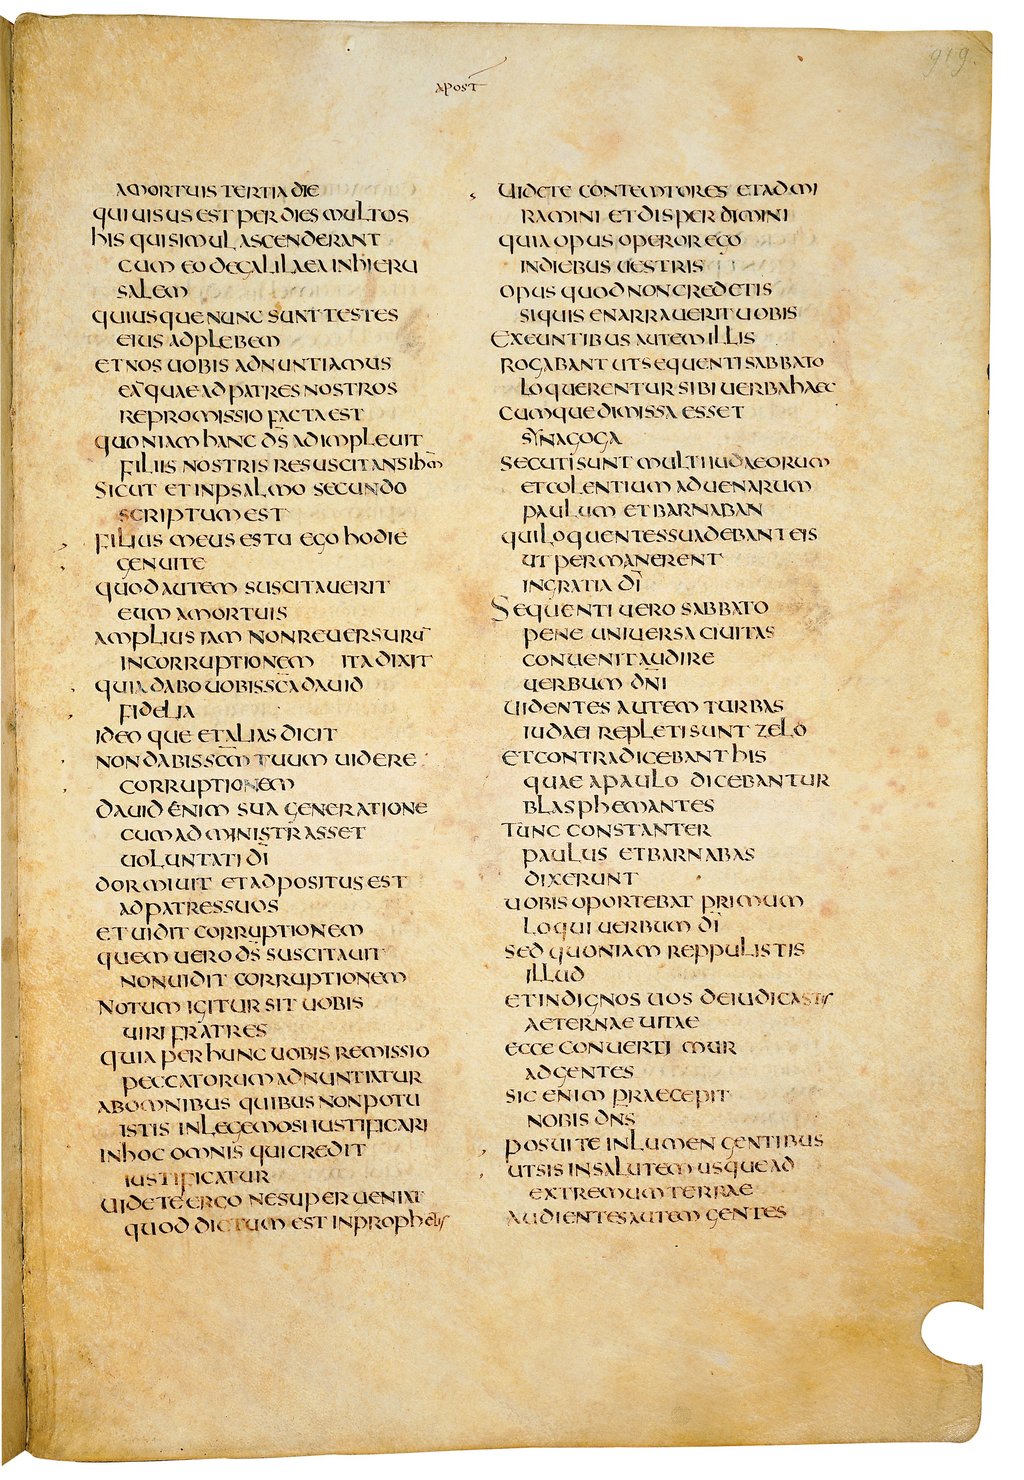 919.
APOST
AMORTUIS TERTIA DIE
QUI UISUS EST PER DIES MULTOS
HIS QUI SIMUL ASCENDERANT
CUM EO DE GALILAEA IN HIERU
SALEM
QUIUSQUE NUNC SUNT TESTES
EIUS AD PLEBEM
ET NOS UOBIS ADNUNTIAMUS
EA QUAE AD PATRES NOSTROS
REPROMISSIO FACTA EST
QUONIAM HANC D̅S̅ ADIMPLEUIT
FILIIS NOSTRIS RESUSCITANS IHM̅
SICUT ET IN PSALMO SECUNDO
SCRIPTUM EST
FILIUS MEUS ES TU EGO HODIE
GENUI TE
QUOD AUTEM SUSCITAUERIT
EUM A MORTUIS
AMPLIUS IAM NON REUERSURU̅
IN CORRUPTIONEM ITA DIXIT
QUIA DABO UOBIS S̅C̅A̅ DAUID
FIDELIA
IDEOQUE ET ALIAS DICIT
NON DABIS S̅C̅M̅ TUUM UIDERE
CORRUPTIONEM
DAUID ENIM SUA GENERATIONE
CUM ADMINISTRASSET
UOLUNTATI D̅I̅
DORMIUIT ET ADPOSITUS EST
AD PATRES SUOS
ET UIDIT CORRUPTIONEM
QUEM UERO D̅S̅ SUSCITAUIT
NON UIDIT CORRUPTIONEM
NOTUM IGITUR SIT UOBIS
UIRI FRATRES
QUIA PER HUNC UOBIS REMISSIO
PECCATORUM ADNUNTIATUR
AB OMNIBUS QUIBUS NON POTU
ISTIS IN LEGE MOSI IUSTIFICARI
IN HOC OMNIS QUI CREDIT
IUSTIFICATUR
UIDETE ERGO NE SUPERUENIAT
QUOD DICTUM EST IN PROPHETIS
UIDETE CONTEMTORES ET ADMI
RAMINI ET DISPERDIMINI
QUIA OPUS OPEROR EGO
IN DIEBUS UESTRIS
OPUS QUOD NON CREDETIS
SI QUIS ENARRAUERIT UOBIS
EXEUNTIBUS AUTEM ILLIS
ROGABANT UT SEQUENTI SABBATO
LOQUERENTUR SIBI UERBA HAEC
CUMQUE DIMISSA ESSET
SYNAGOGA
SECUTI SUNT MULTI IUDAEORUM
ET COLENTIUM ADUENARUM
PAULUM ET BARNABAN
QUI LOQUENTES SUADEBANT EIS
UT PERMANERENT
IN GRATIA D̅I̅
SEQUENTI UERO SABBATO
PENE UNIUERSA CIUITAS
CONUENIT AUDIRE
UERBUM D̅N̅I̅
UIDENTES AUTEM TURBAS
IUDAEI REPLETI SUNT ZELO
ET CONTRADICEBANT HIS
QUAE A PAULO DICEBANTUR
BLASPHEMANTES
TUNC CONSTANTER
PAULUS ET BARNABAS
DIXERUNT
UOBIS OPORTEBAT PRIMUM
LOQUI UERBUM D̅I̅
SED QUONIAM REPPULISTIS
ILLUD
ET INDIGNOS UOS DEIUDICASTIS
AETERNAE UITAE
ECCE CONUERTIMUR
AD GENTES
SIC ENIM PRAECEPIT
NOBIS D̅N̅S̅
POSUI TE IN LUMEN GENTIBUS
UT SIS IN SALUTEM USQUE AD
EXTREMUM TERRAE
AUDIENTES AUTEM GENTES